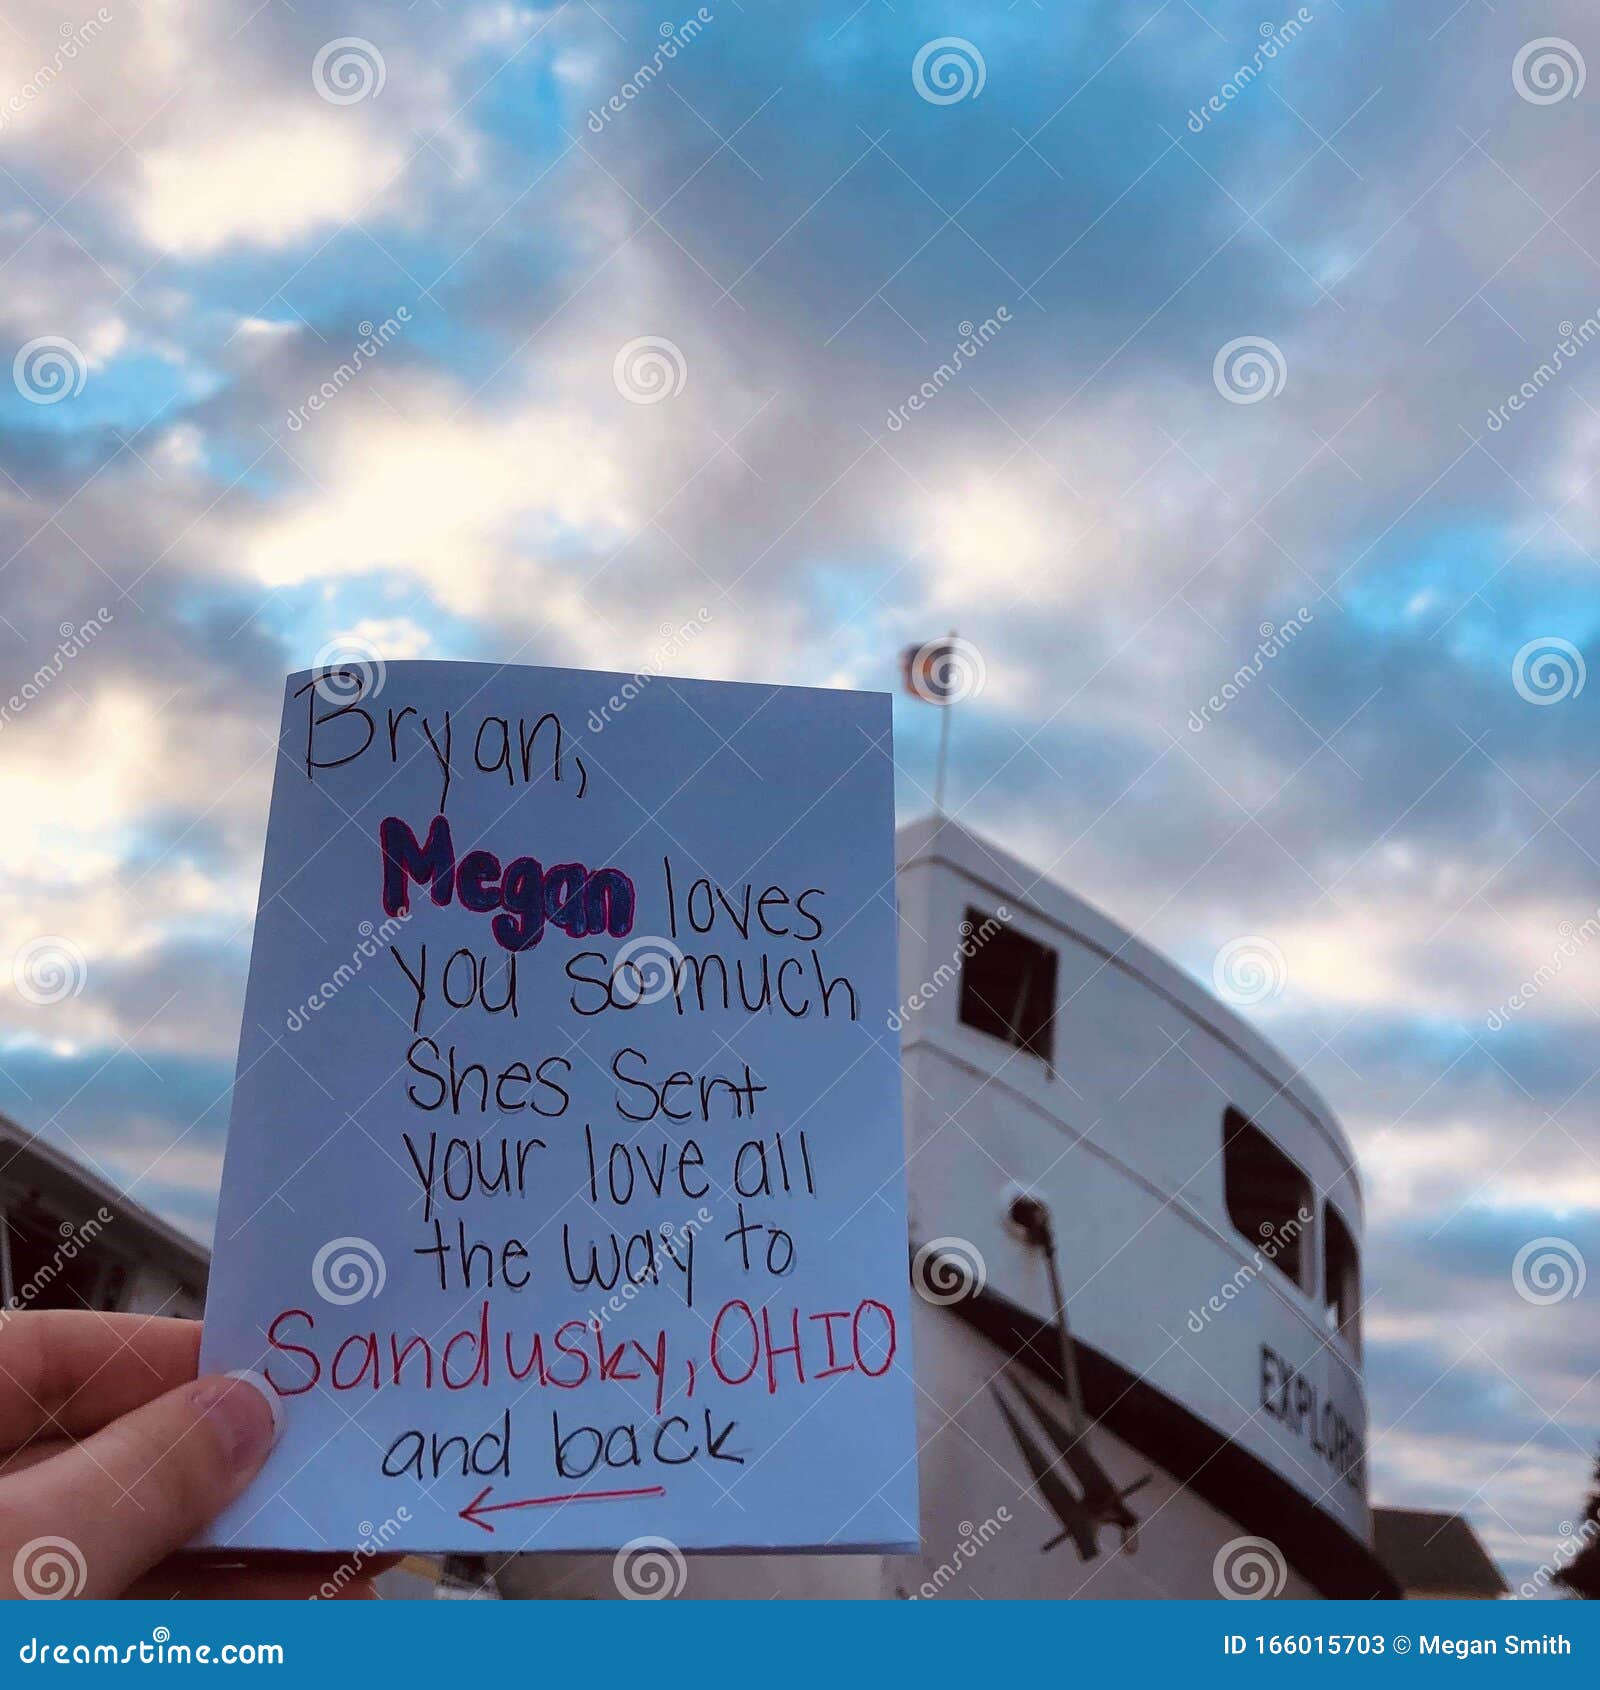 Bryan,
Megan loves
you so much
Shes Sent
your love all
the way to
Sandusky, OHIO
and back
EXPLORER
dreamstime.com
ID 166015703 © Megan Smith